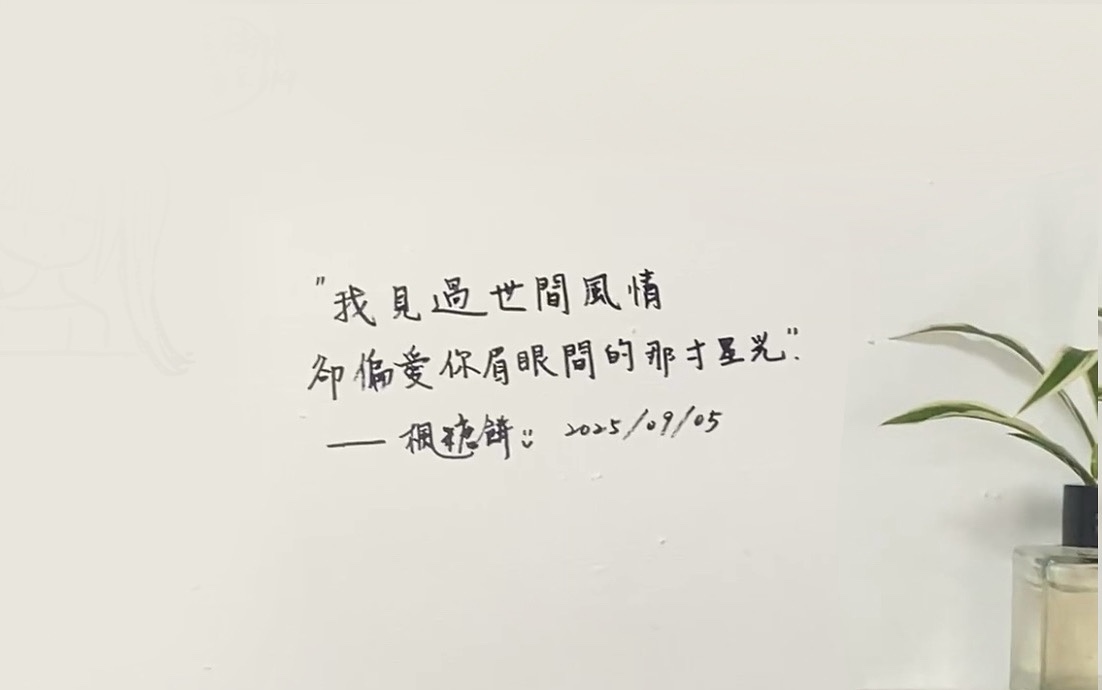 "我見過世間風情
卻偏愛你眉眼間的那寸星光".
——楓糖餅:) 2025/09/05